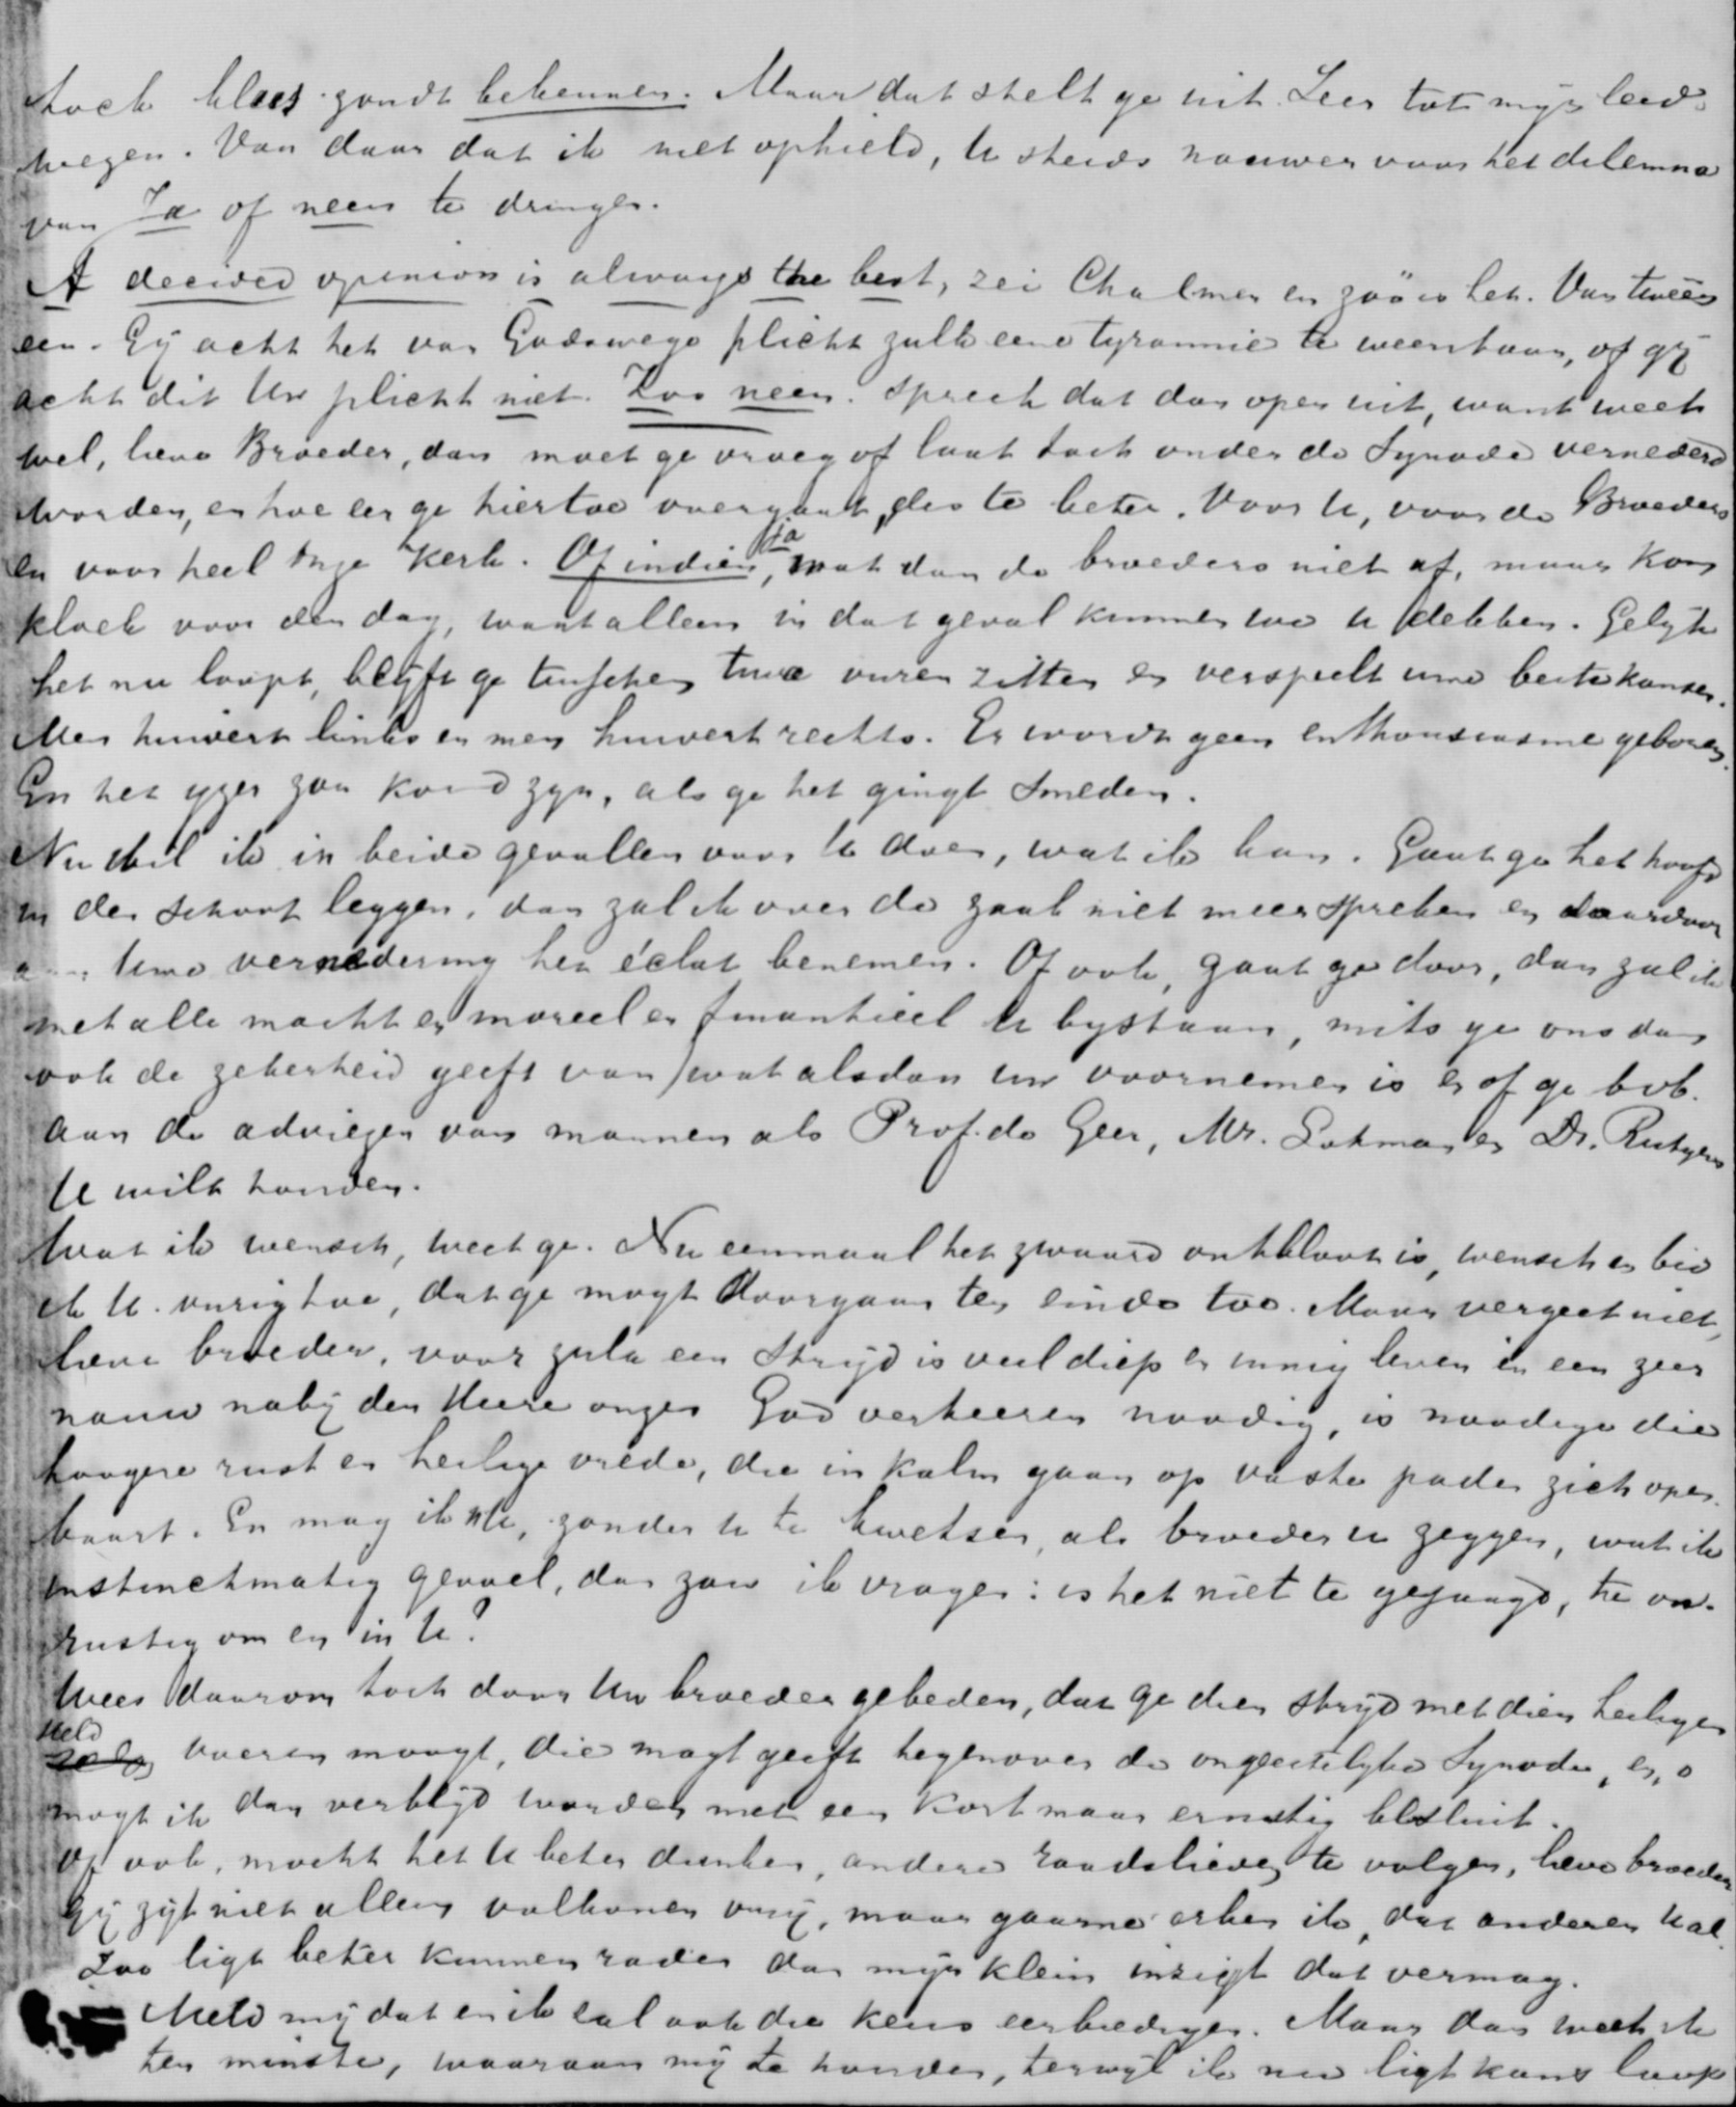 toch kloes zoudt bekennen. Maar dat stelt ge uit. Zeer tot mijn leed-
wezen. Van daar dat ik niet ophield, U steeds nauwer voor het dilemma
van Ja of neen te dringen.
A decided opinion is always the best, zei Chalmer en zóó is het. Van tweeën
een. Gij acht het van Godswege plicht zulk eene tyrannie te weerstaan, of gij
acht dit Uw plicht niet. Zoo neen. Spreek dat dan open uit, want weet
wel, lieve Broeder, dan moet ge vroeg of laat toch onder de Synode vernederd
worden, en hoe eer ge hiertoe overgaat, des te beter. Voor U, voor de Broeders
en voor heel onze Kerk. Of indien ja, mat dan de broeders niet af, maar kom
kloek voor den dag, want alleen in dat geval kunnen we U dekken. Gelijk
het nu loopt, blijft ge tusschen twee vuren zitten en verspeelt uwe beste kansen.
Men huivert links en men huivert rechts. Er wordt geen enthousiasme geboren.
En het yzer zou koud zyn, als ge het gingt smeden.
Nu wil ik in beide gevallen voor U doen, wat ik kan. Gaat ge het hoofd
in den schoot leggen, dan zal ik over de zaak niet meer spreken en daardoor
Uwe vernedering het éclat benemen. Of ook, gaat ge door, dan zal ik
met alle macht en moreel en finantieel U bystaan, mits ge ons dan
ook de zekerheid geeft van wat alsdan uw voornemen is en of ge bvb.
aan de adviezen van mannen als Prof. de Geer, Mr. Lohman en Dr. Rutgers
U wilt houden.
Wat ik wensch, weet ge. Nu eenmaal het zwaard ontbloot is, wensch en bid
ik U vurig toe, dat ge moogt doorgaan ten einde toe. Maar vergeet niet,
lieve broeder, voor zulk een strijd is veel diep en innig leven en een zeer
nauw nabij den Heere onzen God verkeeren noodig, is noodige die
hoogere rust en heilige vrede, die in kalm gaan op vaste paden zich open-
baart. En mag ik nu, zonder U te kwetsen, als broeder U zeggen, wat ik
instinctmatig gevoel, dan zou ik vragen: is het niet te gejaagd, te on-
rustig om en in U?
Wees daarom toch door Uw broeder gebeden, dat ge dien strijd met dien heiligen
Held voeren moogt, die magt geeft tegenover de ongeestelyke Synode, en, o
mogt ik dan verblijd worden met een kort maar ernstig besluit.
Of ook, mocht het U beter dunken, andere raadslieden te volgen, lieve broeder
gij zijt niet alleen volkomen vrij, maar gaarne erken ik, dat anderen U al-
zoo ligt beter kunnen raden dan mijn klein inzigt dat vermag.
Meld mij dat en ik zal ook die keus eerbiedigen. Maar dan weet ik
ten minste, waaraan mij te houden, terwijl ik nu ligt kans loop